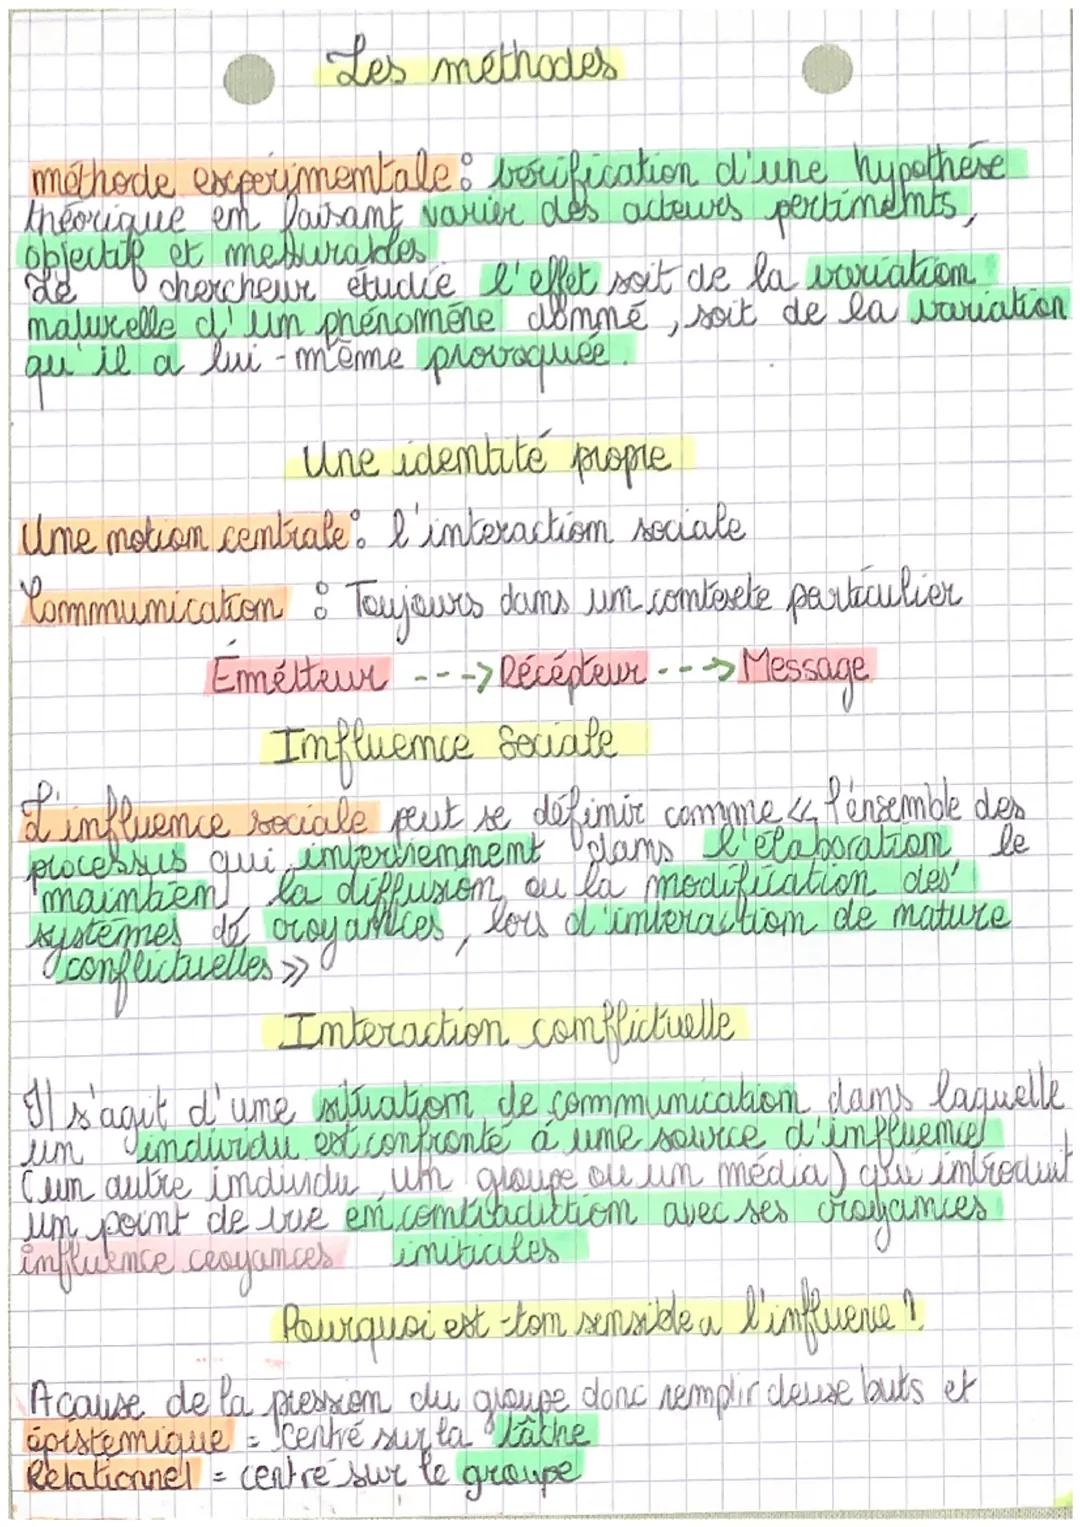 Les méthodes
méthode expérimentale : vérification d'une hypothése
théorique en faisant varier des acteurs pertiments,
objectif et messurables.
Le chercheur étudie l'effet soit de la variation
naturelle d'un phénoméne donné, soit de la variation
qu'il a lui-même provoquée.
Une identité propre
Une notion centrale : l'interaction sociale
Communication : Toujours dans un contexte particulier
Émétteur ---> Récépteur ---> Message
Influence Sociale
L'influence sociale peut se définir comme « l'ensemble des
processus qui interviennent dans l'élaboration le
maintien, la diffusion ou la modification des
systèmes de croyances, lors d'interaction de nature
conflictuelles »
Interaction conflictuelle
Il s'agit d'une situation de communication dans laquelle
un individu est confronté à une source d'influence
(un autre individu un groupe ou un média) qui introduit
un point de vue en contradiction avec ses croyances
influence croyances initiales
Pourquoi est-ton sensible a l'influene ?
A cause de la pression du groupe donc remplir deux buts et
épistemique = Centré sur la tâche
Relationnel = centré sur le groupe